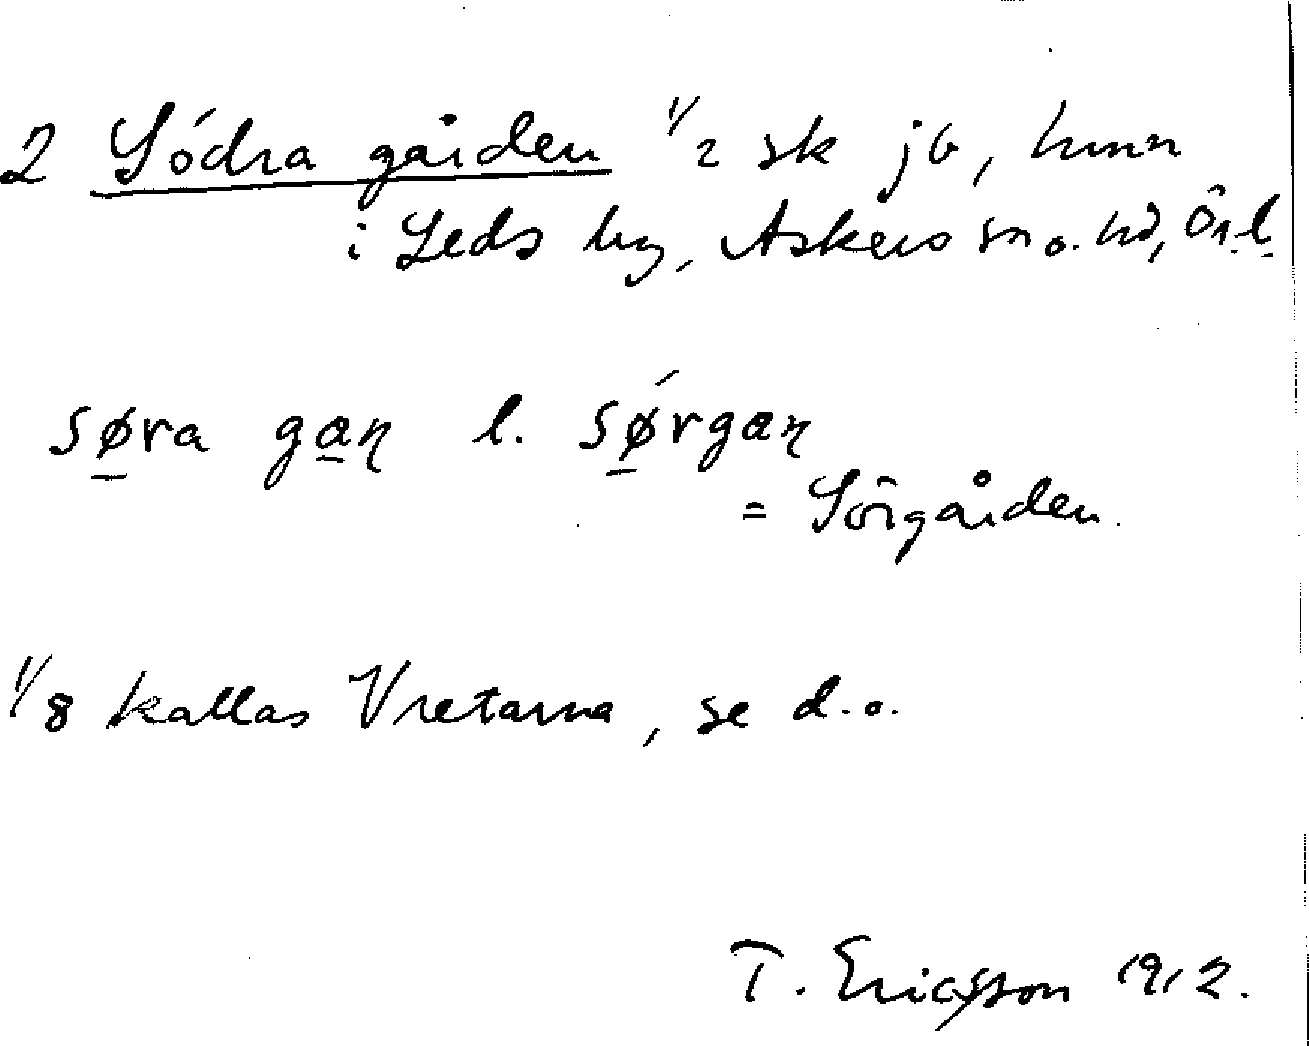 2 Södra gården 1/2 sk jb, hmn
i Leds by, Askers sn o. hd, Ör. l.
søra gaɳ l. sǿrgaɳ
= Sörgården.
1/8 kallas Vretarna, se d. o.
T. Ericsson 1912.